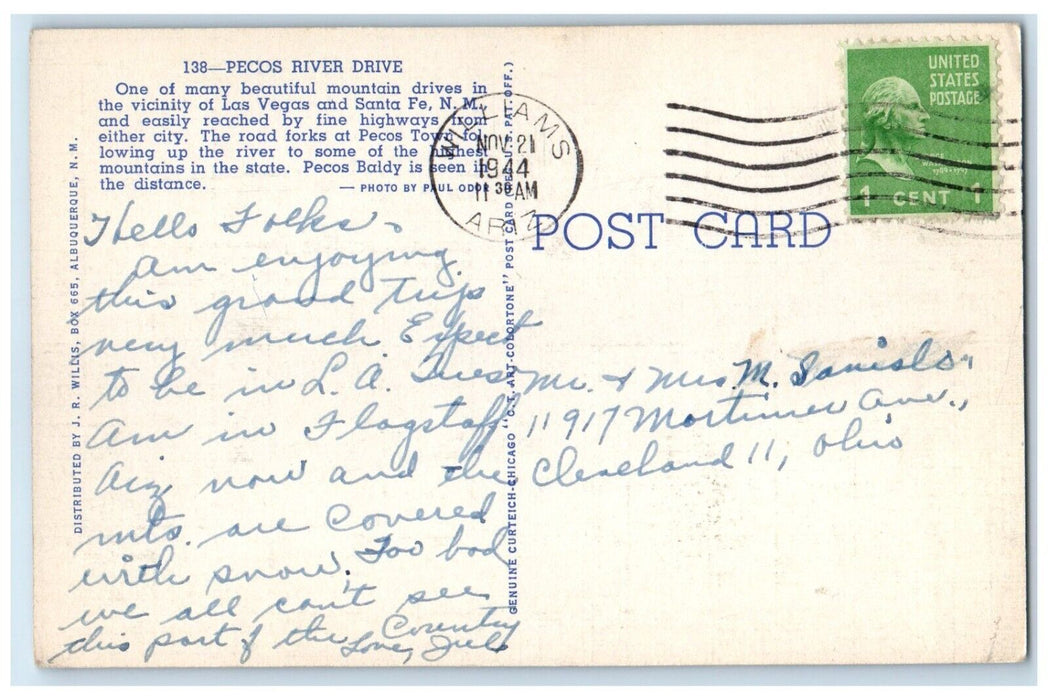 138—PECOS RIVER DRIVE
One of many beautiful mountain drives in
the vicinity of Las Vegas and Santa Fe, N. M.,
and easily reached by fine highways from
either city. The road forks at Pecos Town fol-
lowing up the river to some of the highest
mountains in the state. Pecos Baldy is seen in
the distance.
— PHOTO BY PAUL ODOR
DISTRIBUTED BY J. R. WILLIS, BOX 665, ALBUQUERQUE, N. M.
Hello Folks -
Am enjoying
this grand trip
very much. Expect
to be in L. A. Tues.
Am in Flagstaff
Ariz now and the
mts. are covered
with snow. Too bad
we all can't see
this part of the Country
Love,
GENUINE CURTEICH-CHICAGO "C. T. ART-COLORTONE" POST CARD (REG. U. S. PAT. OFF.)
WILLIAMS
NOV 21
1944
11 30 AM
ARIZ.
UNITED
STATES
POSTAGE
1 CENT 1
POST CARD
Mr. & Mrs. M.
11917 Mortimer Ave.,
Cleveland 11, Ohio